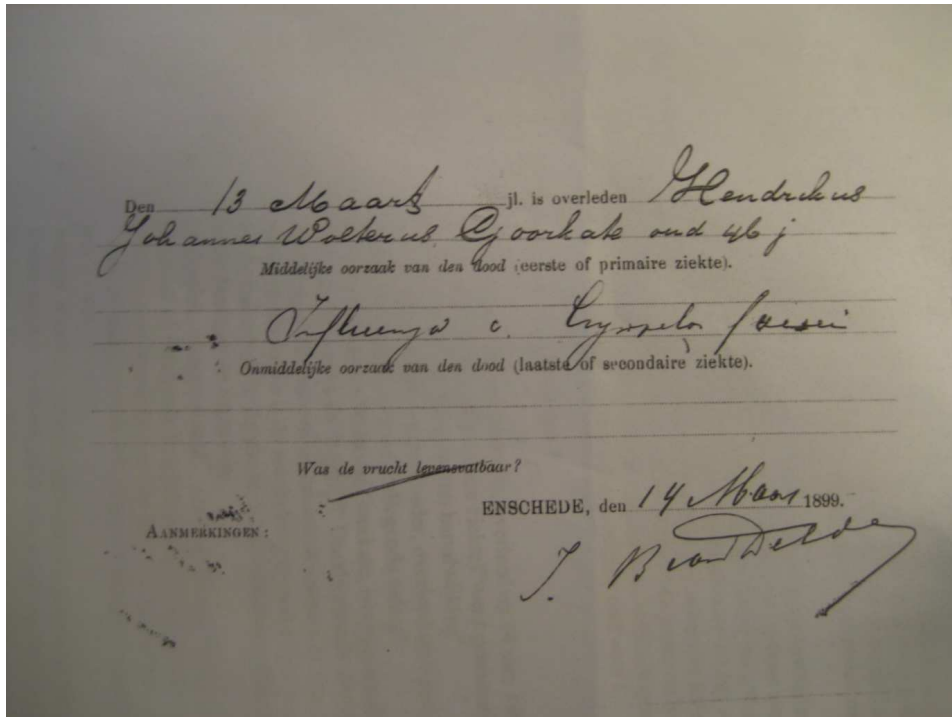 Den 13 Maart jl. is overleden Hendrikus
Johannes Wolterus Goorhate oud 46 j
Middelijke oorzaak van den dood (eerste of primaire ziekte).
Influenza c. Erysipelas faciei
Onmiddelijke oorzaak van den dood (laatste of secondaire ziekte).
Was de vrucht levensvatbaar?
ENSCHEDE, den 14 Maart 1899.
AANMERKINGEN:
J. B